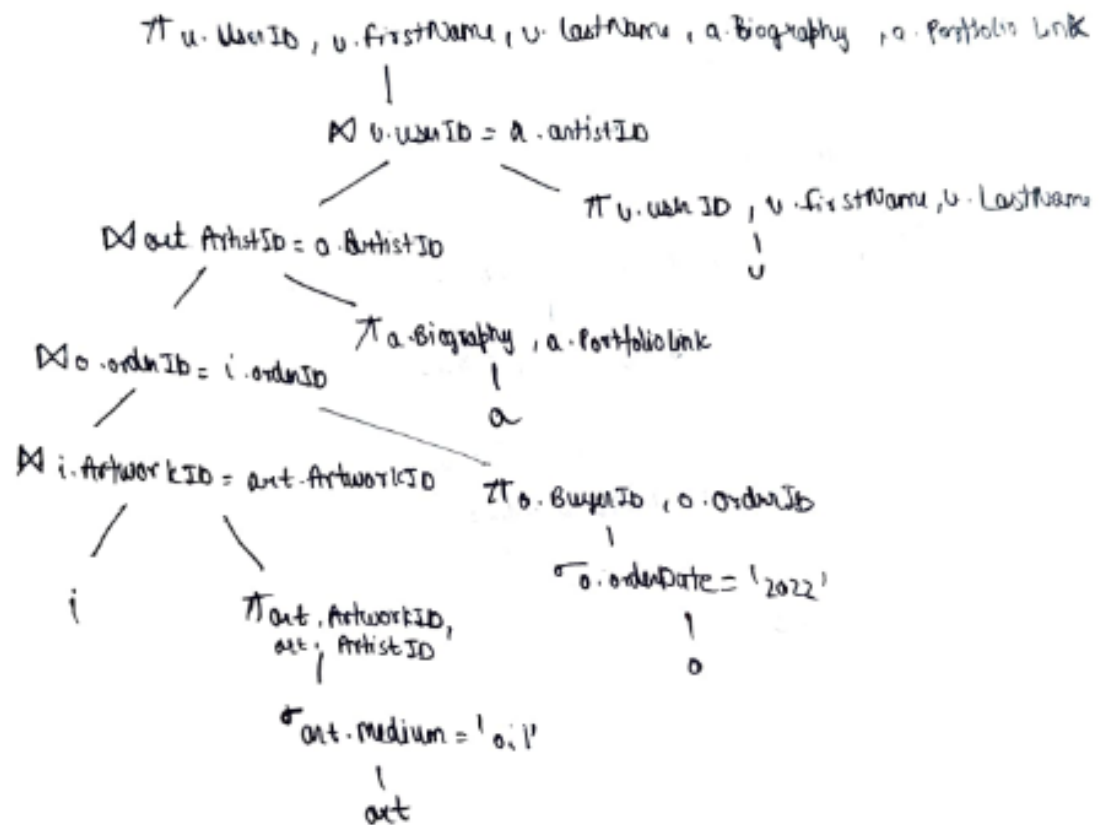 π u.UserID, u.firstName, u.LastName, a.Biography, a.Portfolio Link
⋈ u.userID = a.artistID
π u.userID, u.firstName, u.LastName
⋈ art.ArtistID = a.ArtistID
u
π a.Biography, a.PortfolioLink
⋈ o.orderID = i.orderID
a
⋈ i.ArtworkID = art.ArtworkID
π o.BuyerID, o.OrderID
σ o.orderDate = '2022'
i
π art.ArtworkID,
art. ArtistID
o
σ art.medium = 'oil'
art